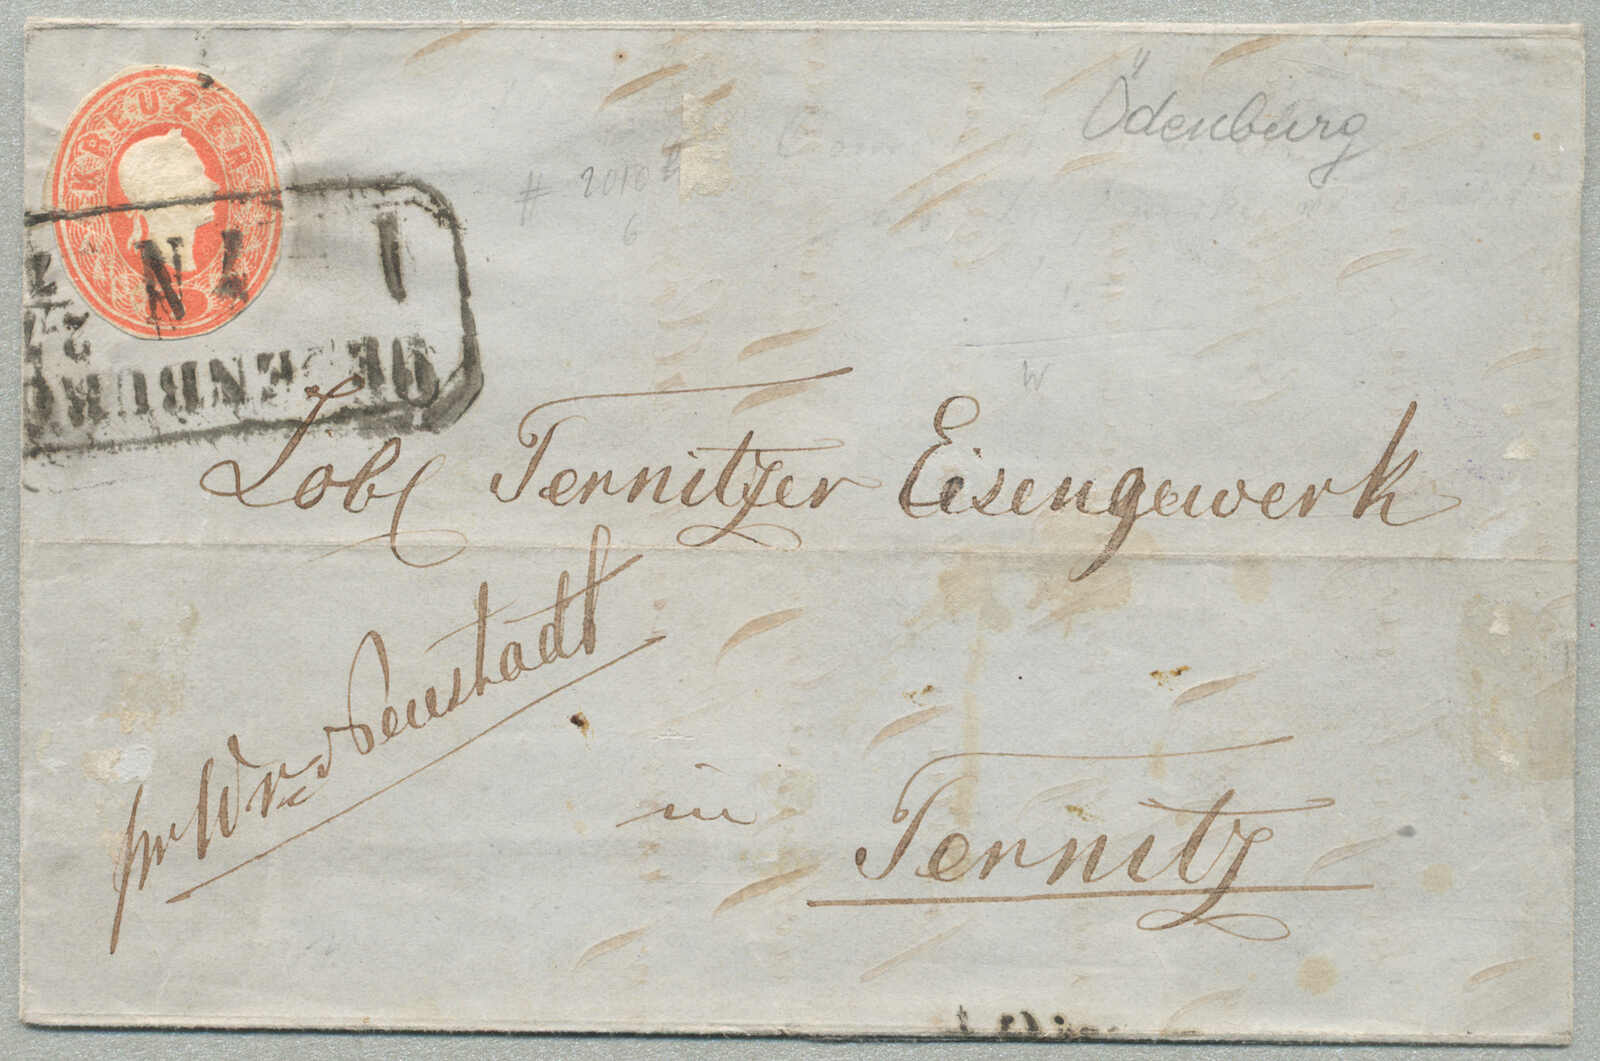 KREUZER
OEDENBURG
Ödenburg
# 2010
6
W
Lobl Ternitzer Eisengewerk
pr Wr. Neustadt
in
Ternitz